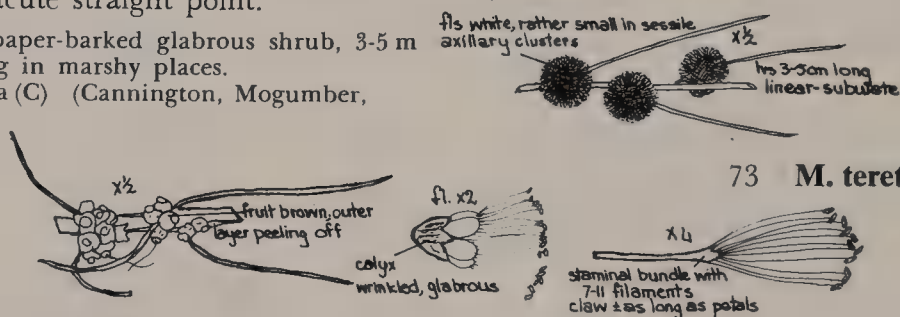 acute straight point.
paper-barked glabrous shrub, 3-5 m
g in marshy places.
a (C) (Cannington, Mogumber,
fls white, rather small in sessile
axillary clusters
x½
lvs 3-5cm long
linear-subulate
73 M. teret
x½
fruit brown, outer
layer peeling off
fl. x2
calyx
wrinkled, glabrous
x4
staminal bundle with
7-11 filaments
claw ± as long as petals